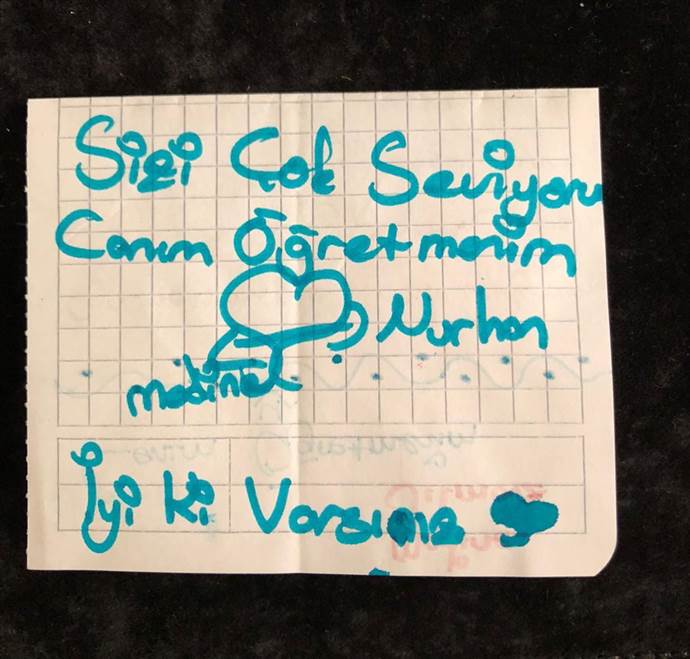 Sizi Çok Seviyoru
Canım Öğretmenim
Nurhan
medine
İyi ki Varsınız